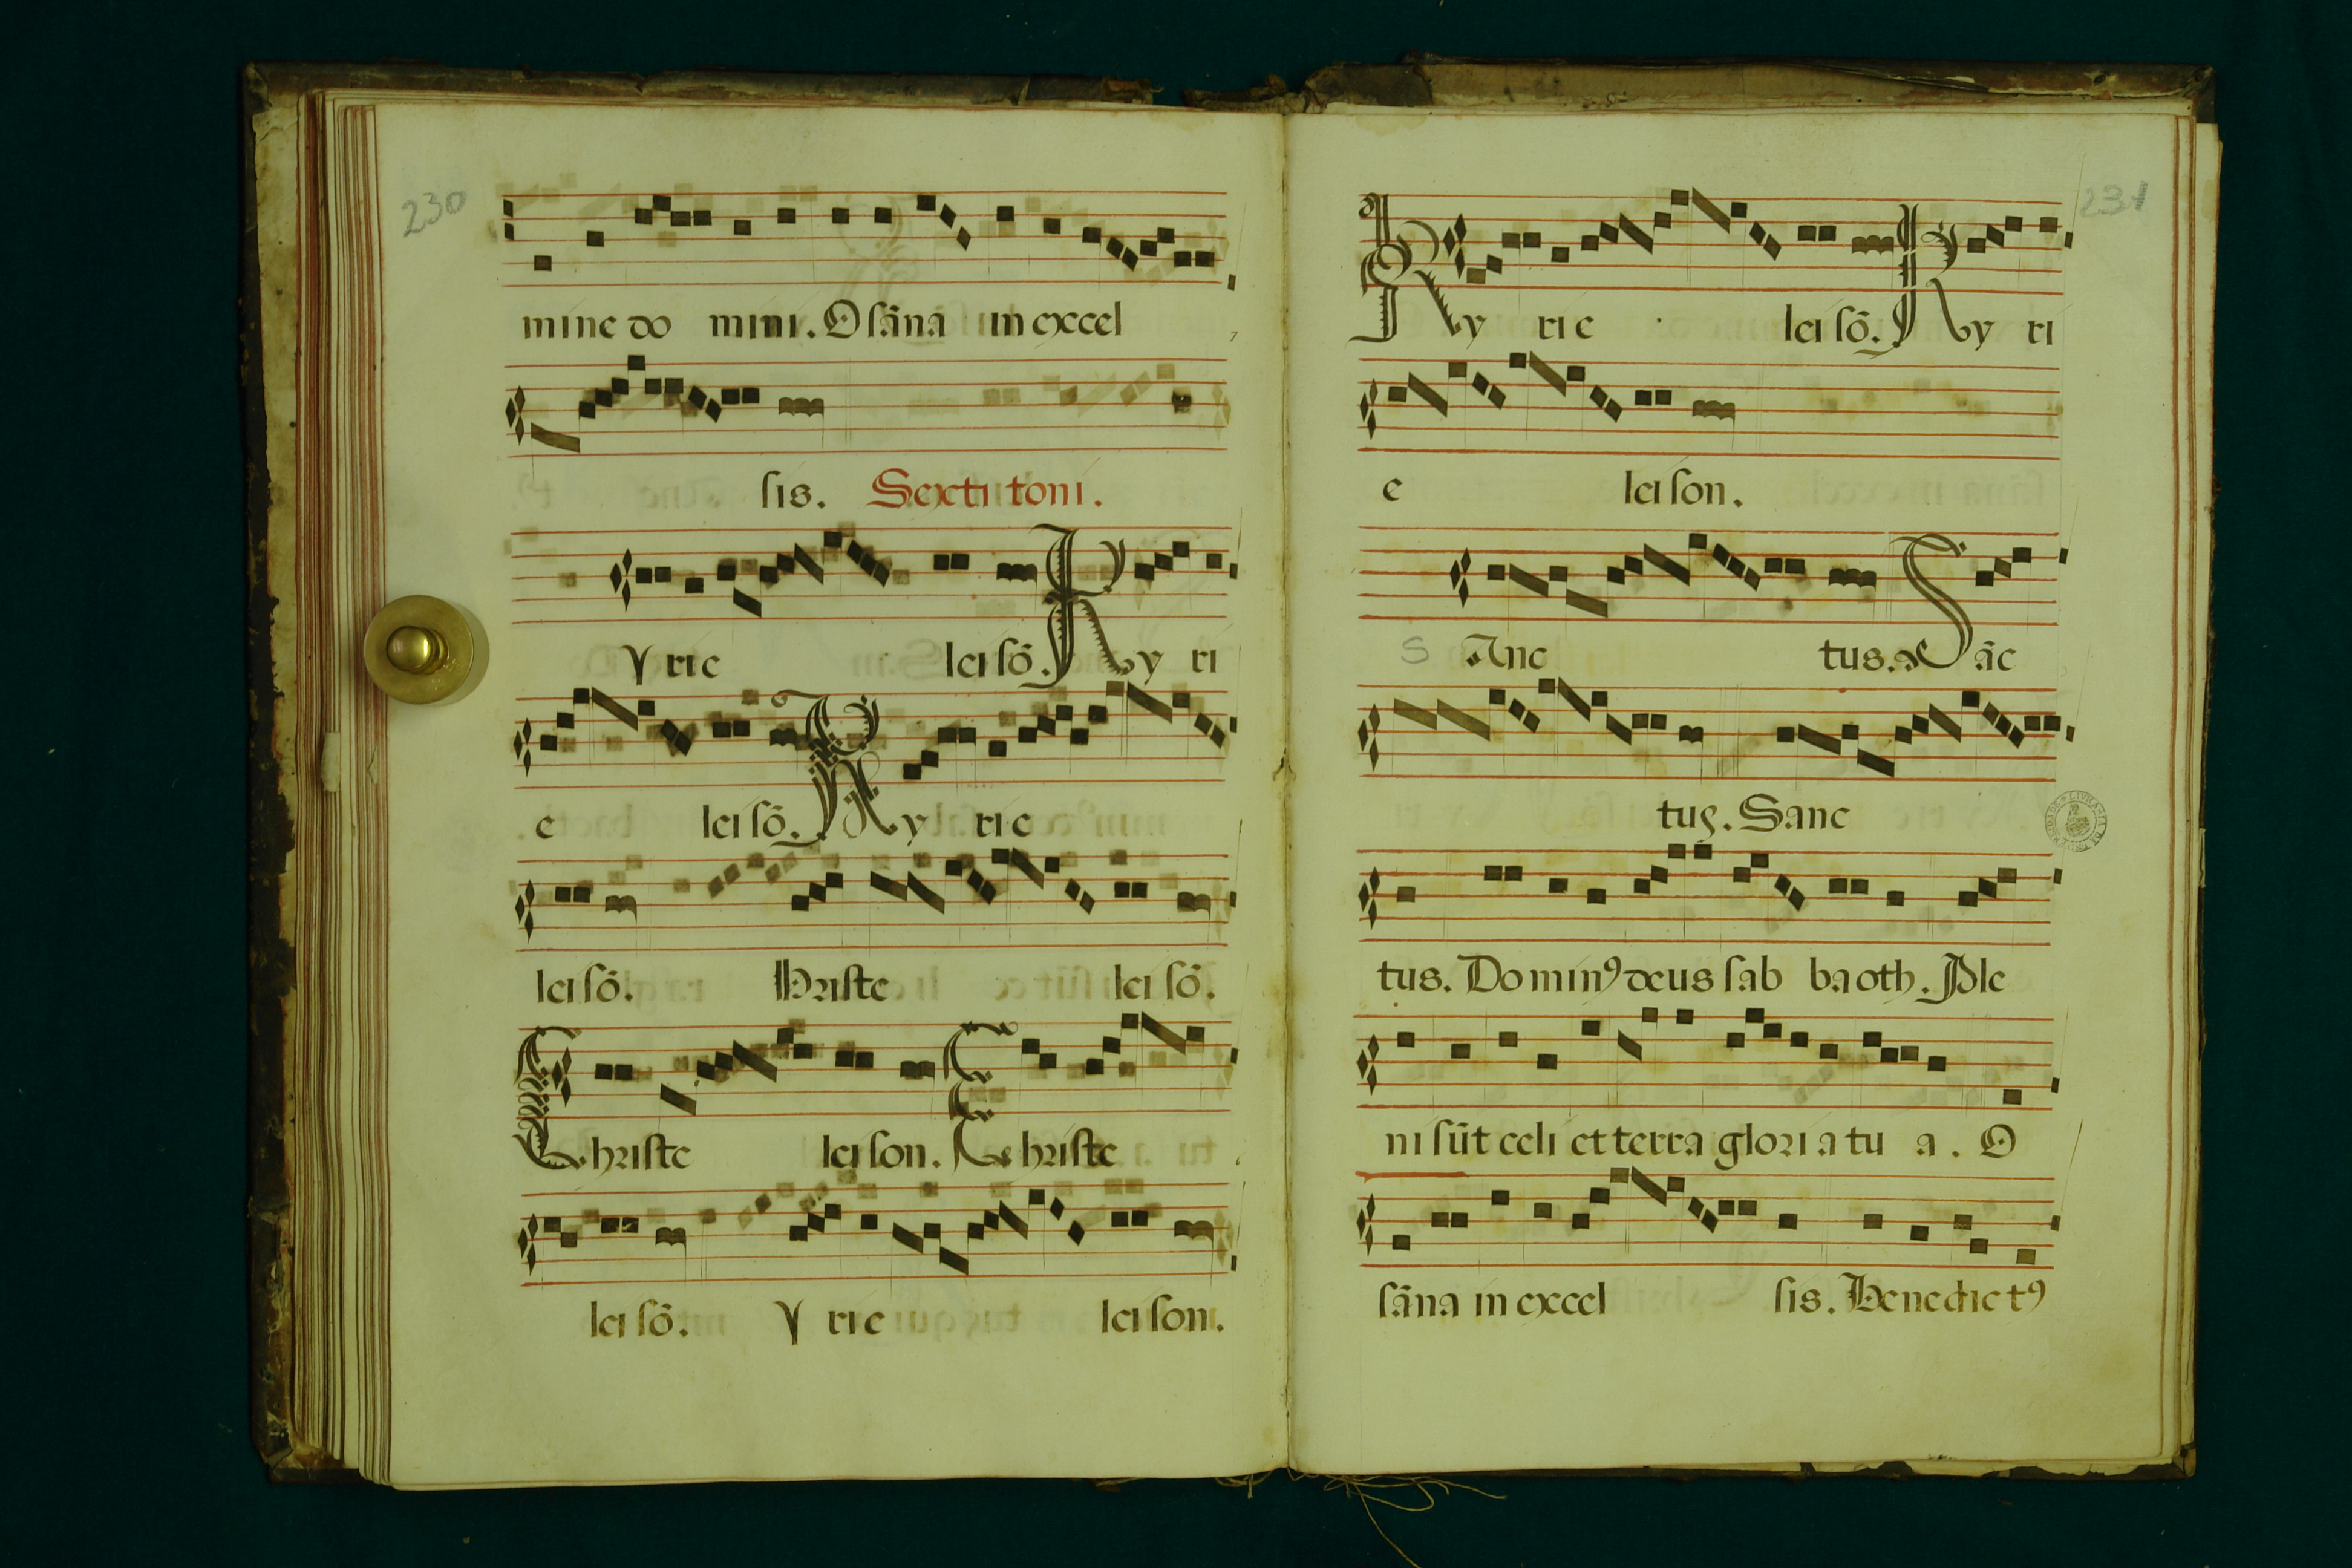 230
mine do mini. Osāna in excel
sis. Sexti toni.
Yrie leisō. Kyri
e leisō. Kyrie
leisō. Hriste leisō.
Christe leison. Christe
leisō. Yrie leison.
231
Kyrie leisō. Kyri
e leison.
S Anc tus. Sāc
tuꝫ. Sanc
tus. Dominꝰ deus sab baoth. Ple
ni sūt celi et terra gloria tu a. O
sāna in excel sis. Benedictꝰ